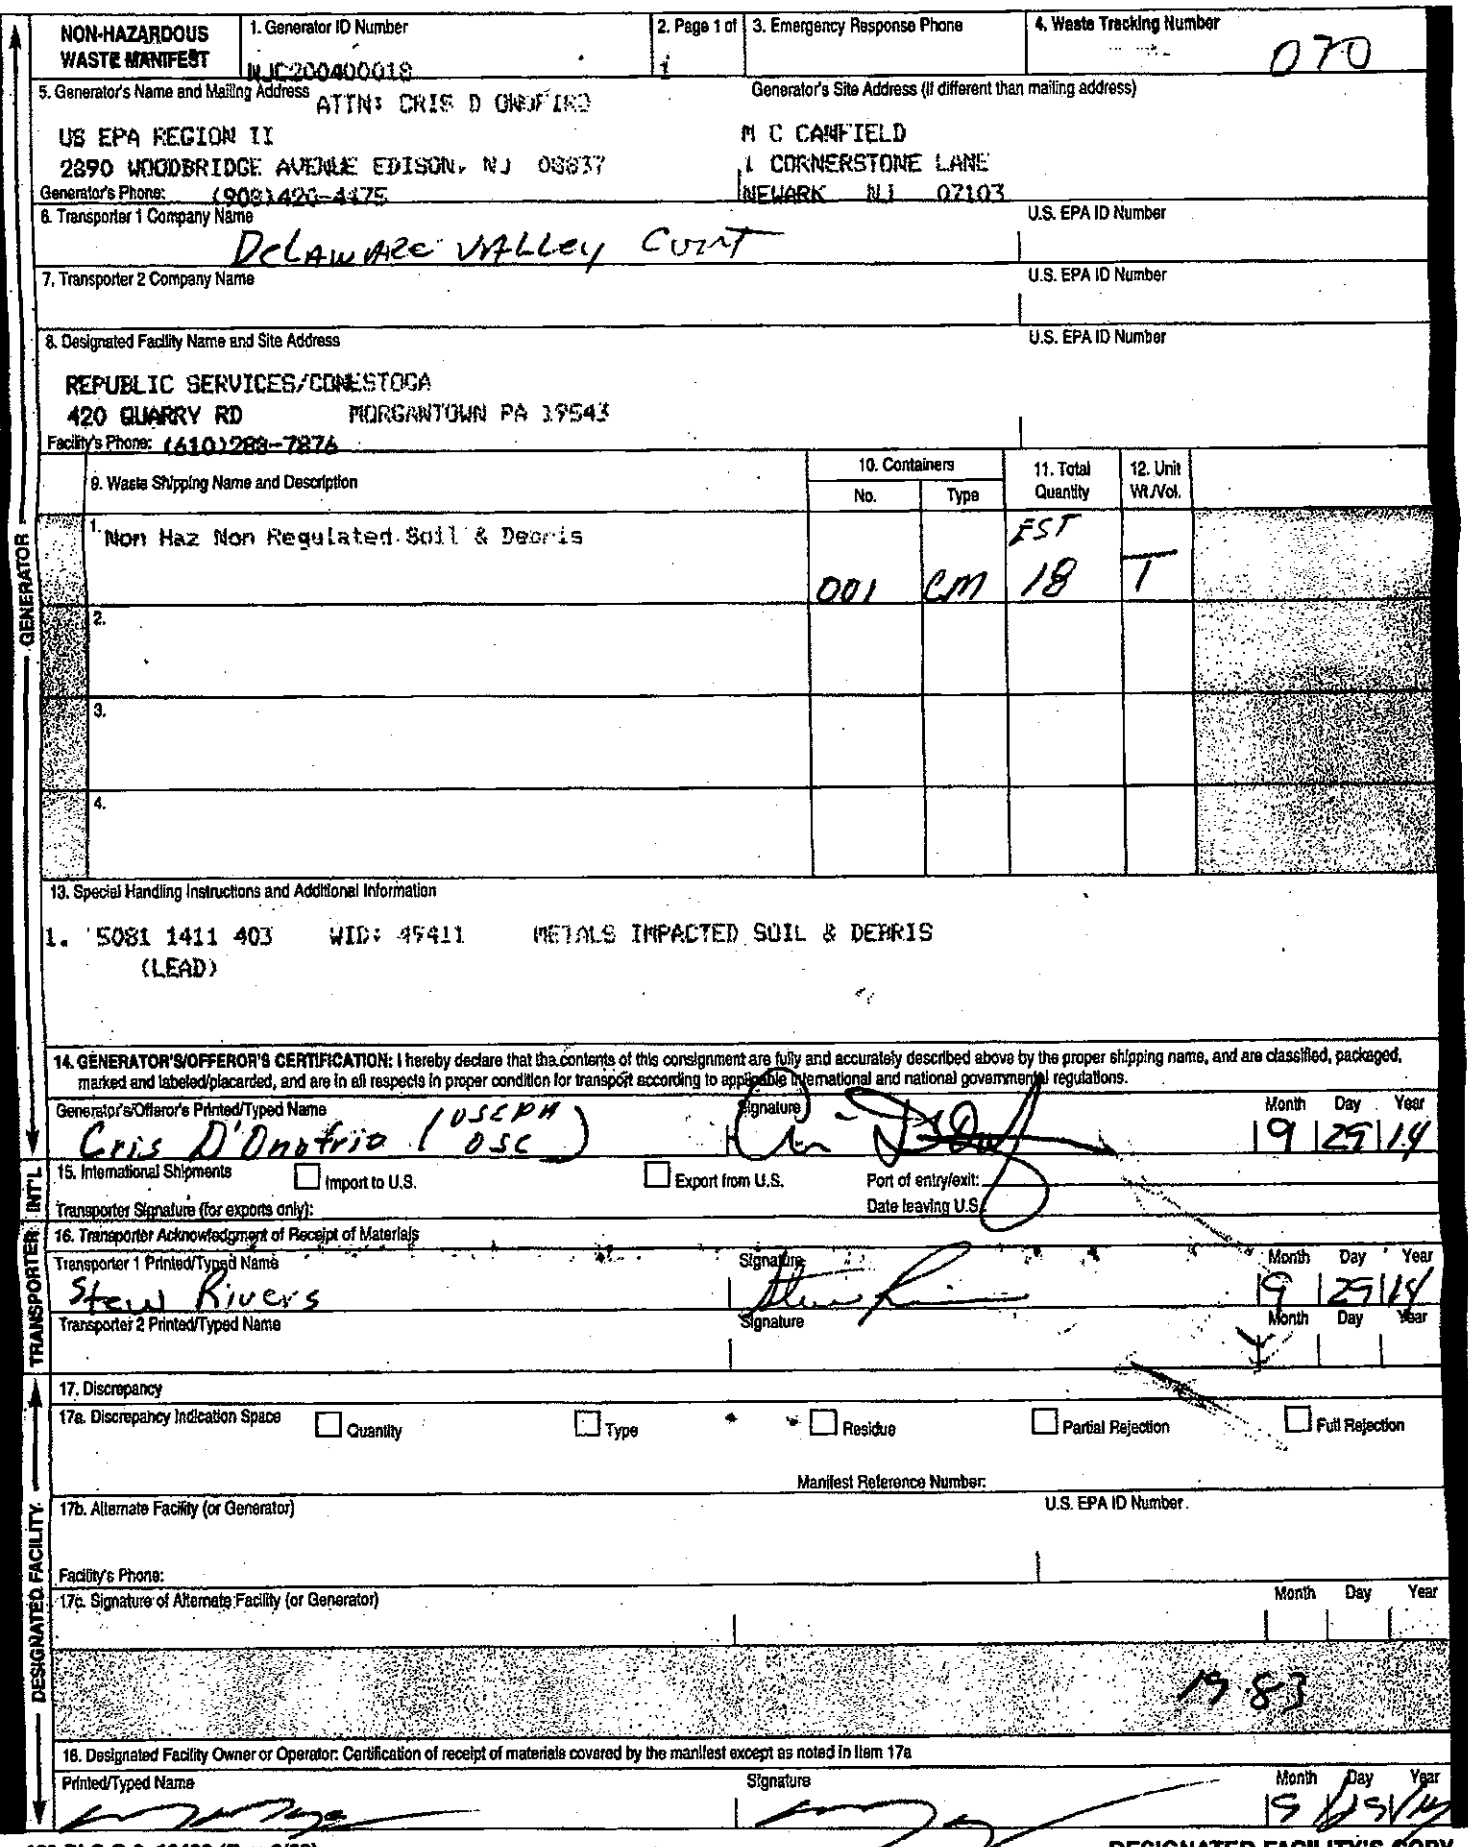 NON-HAZARDOUS WASTE MANIFEST
1. Generator ID Number
NJC200400018
2. Page 1 of
1
3. Emergency Response Phone
4. Waste Tracking Number
070
5. Generator's Name and Mailing Address
ATTN: CRIS D ONOFIRO
US EPA REGION II
2890 WOODBRIDGE AVENUE EDISON, NJ 08837
Generator's Phone: (908)420-4475
Generator's Site Address (if different than mailing address)
M C CANFIELD
1 CORNERSTONE LANE
NEWARK NJ 07103
6. Transporter 1 Company Name
U.S. EPA ID Number
Delaware Valley
7. Transporter 2 Company Name
U.S. EPA ID Number
8. Designated Facility Name and Site Address
U.S. EPA ID Number
REPUBLIC SERVICES/CONESTOGA
420 QUARRY RD MORGANTOWN PA 19543
Facility's Phone: (610)288-7876
9. Waste Shipping Name and Description
10. Containers
No.
Type
11. Total Quantity
12. Unit Wt./Vol.
1. Non Haz Non Regulated Soil & Debris
001 CM EST 18 T
2.
3.
4.
13. Special Handling Instructions and Additional Information
1. 5081 1411 403 WID: 49411 METALS IMPACTED SOIL & DEBRIS
(LEAD)
14. GENERATOR'S/OFFEROR'S CERTIFICATION: I hereby declare that the contents of this consignment are fully and accurately described above by the proper shipping name, and are classified, packaged,
marked and labeled/placarded, and are in all respects in proper condition for transport according to applicable international and national governmental regulations.
Generator's/Offeror's Printed/Typed Name
Signature
Month Day Year
Cris D'Onofrio (USEPA OSC)
9 29 14
15. International Shipments
Import to U.S.
Export from U.S.
Port of entry/exit:
Transporter Signature (for exports only):
Date leaving U.S.:
16. Transporter Acknowledgment of Receipt of Materials
Transporter 1 Printed/Typed Name
Signature
Month Day Year
Stew Rivers
9 29 14
Transporter 2 Printed/Typed Name
Signature
Month Day Year
17. Discrepancy
17a. Discrepancy Indication Space
Quantity
Type
Residue
Partial Rejection
Full Rejection
Manifest Reference Number:
17b. Alternate Facility (or Generator)
U.S. EPA ID Number
Facility's Phone:
17c. Signature of Alternate Facility (or Generator)
Month Day Year
19.83
18. Designated Facility Owner or Operator: Certification of receipt of materials covered by the manifest except as noted in Item 17a
Printed/Typed Name
Signature
Month Day Year
GENERATOR
INT'L
TRANSPORTER
DESIGNATED FACILITY
DESIGNATED FACILITY'S COPY